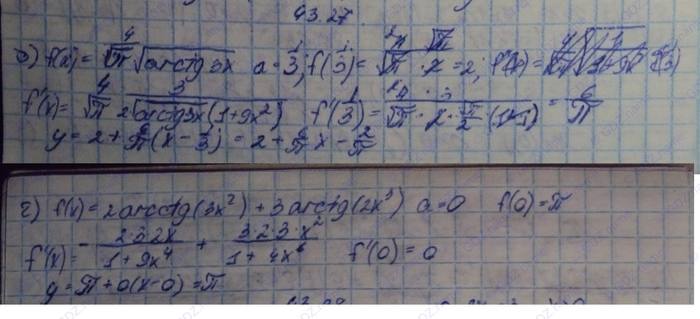 43.27
в) f(x) = 4/√π √arctg 3x a = 1/3; f(1/3) = 4/√π · √π/2 = 2;
f'(x) = 4/√π · 3/(2√arctg 3x (1+9x²)) f'(1/3) = = 6/π
y = 2 + 6/π (x - 1/3) = 2 + 6/π x - 2/π
г) f(x) = 2arcctg(3x²) + 3arctg(2x³) a = 0 f(0) = π
f'(x) = - 2·3·2x/(1+9x⁴) + 3·2·3·x²/(1+4x⁶) f'(0) = 0
y = π + 0(x-0) = π